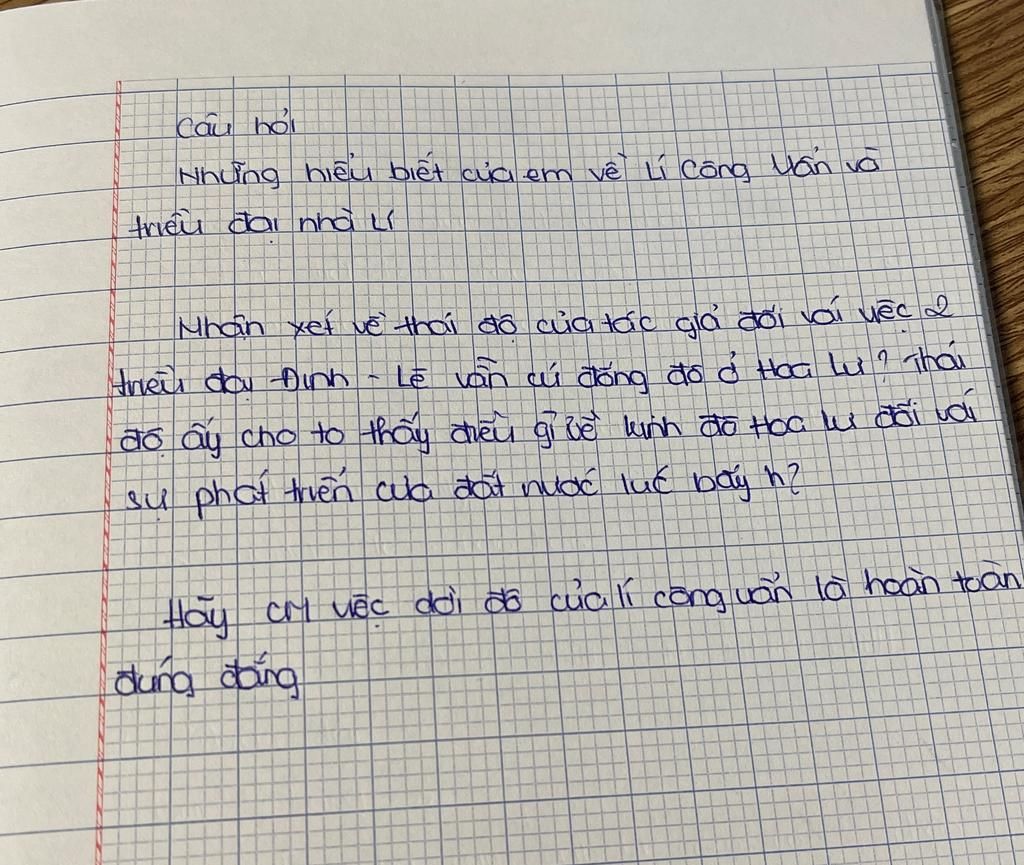 Câu hỏi
Những hiểu biết của em về Lí Công Uẩn và
triều đại nhà Lí
Nhận xét về thái độ của tác giả đối với việc 2
triều đại Đinh - Lê vẫn cứ đóng đô ở Hoa Lư? Thái
độ ấy cho ta thấy điều gì về kinh đô Hoa Lư đối với
sự phát triển của đất nước lúc bấy h?
Hãy CM việc dời đô của lí công uẩn là hoàn toàn
đúng đắng